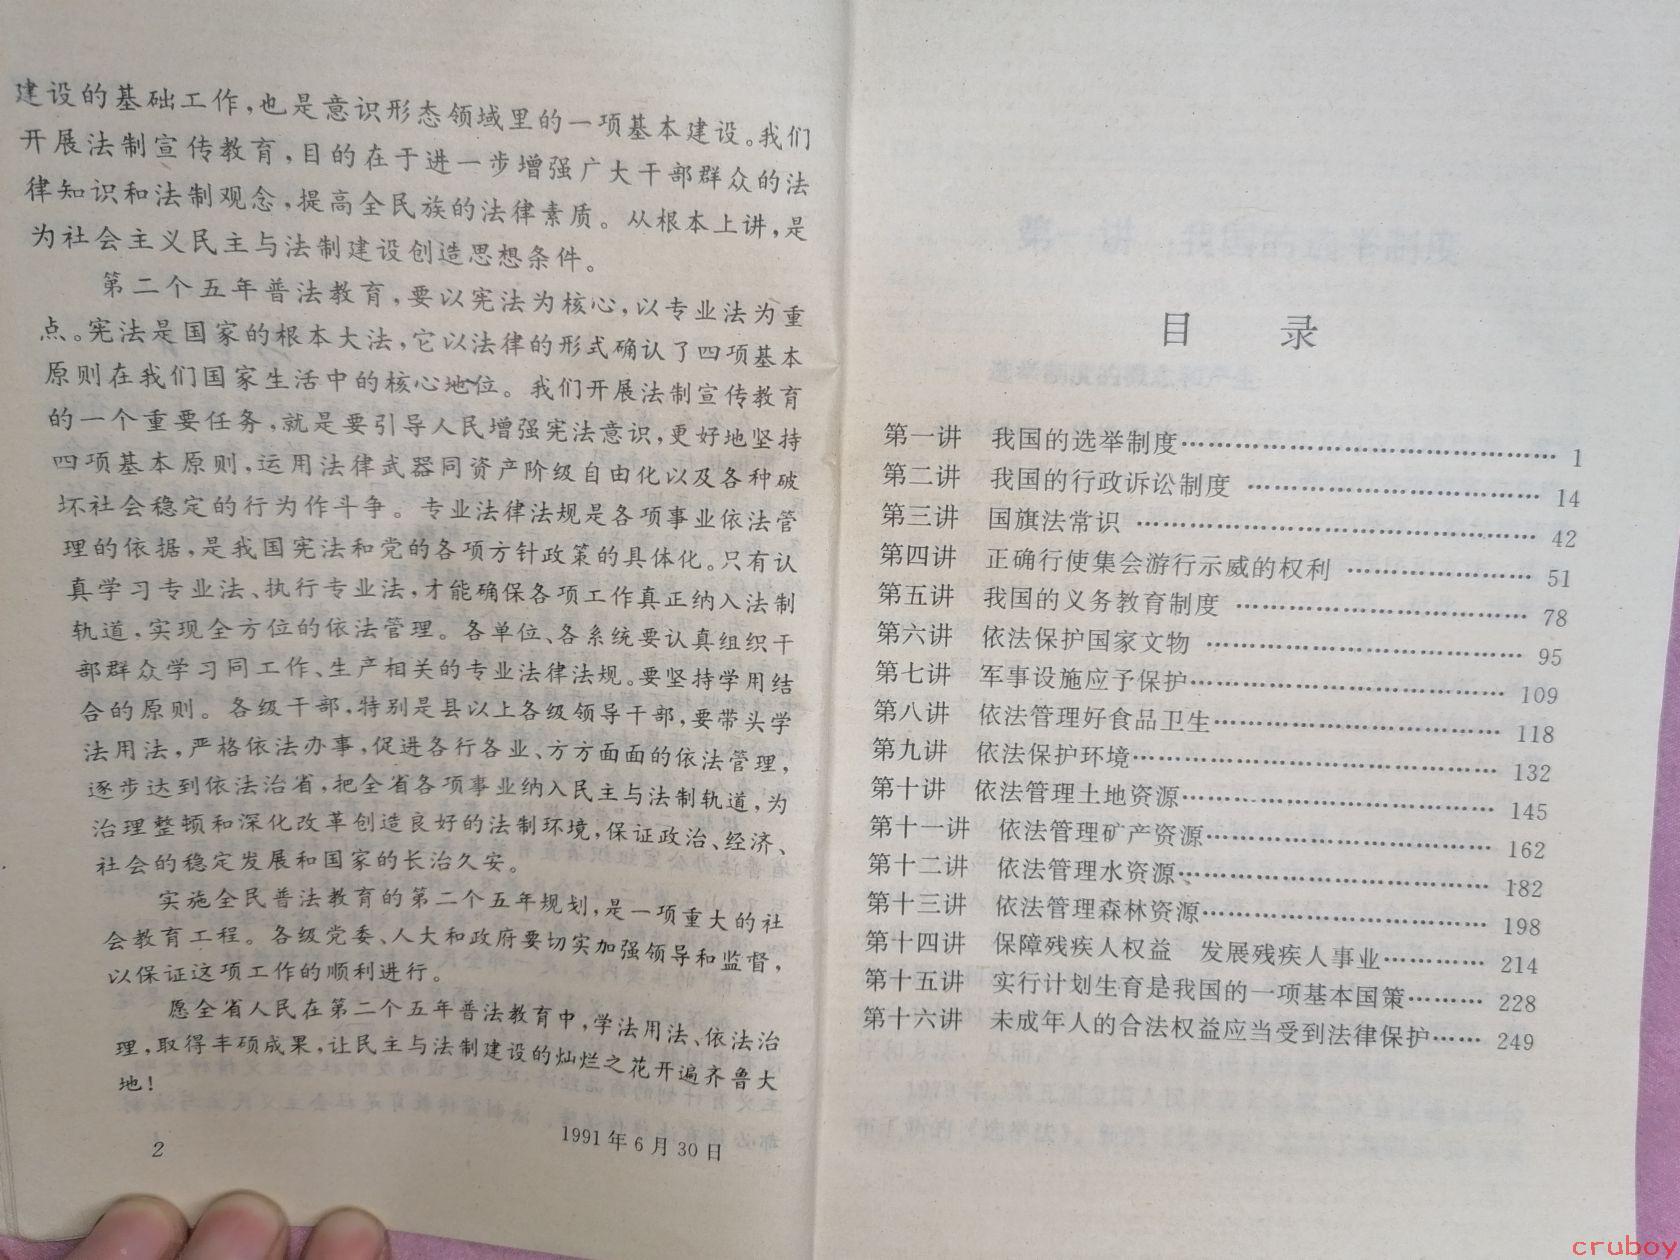 建设的基础工作,也是意识形态领域里的一项基本建设。我们
开展法制宣传教育,目的在于进一步增强广大干部群众的法
律知识和法制观念,提高全民族的法律素质。从根本上讲,是
为社会主义民主与法制建设创造思想条件。
第二个五年普法教育,要以宪法为核心,以专业法为重
点。宪法是国家的根本大法,它以法律的形式确认了四项基本
原则在我们国家生活中的核心地位。我们开展法制宣传教育
的一个重要任务,就是要引导人民增强宪法意识,更好地坚持
四项基本原则,运用法律武器同资产阶级自由化以及各种破
坏社会稳定的行为作斗争。专业法律法规是各项事业依法管
理的依据,是我国宪法和党的各项方针政策的具体化。只有认
真学习专业法、执行专业法,才能确保各项工作真正纳入法制
轨道,实现全方位的依法管理。各单位、各系统要认真组织干
部群众学习同工作、生产相关的专业法律法规。要坚持学用结
合的原则。各级干部,特别是县以上各级领导干部,要带头学
法用法,严格依法办事,促进各行各业、方方面面的依法管理,
逐步达到依法治省,把全省各项事业纳入民主与法制轨道,为
治理整顿和深化改革创造良好的法制环境,保证政治、经济、
社会的稳定发展和国家的长治久安。
实施全民普法教育的第二个五年规划,是一项重大的社
会教育工程。各级党委、人大和政府要切实加强领导和监督,
以保证这项工作的顺利进行。
愿全省人民在第二个五年普法教育中,学法用法、依法治
理,取得丰硕成果,让民主与法制建设的灿烂之花开遍齐鲁大
地!
1991年6月30日
2
目 录
第一讲 我国的选举制度…………………………………… 1
第二讲 我国的行政诉讼制度 …………………………… 14
第三讲 国旗法常识 ……………………………………… 42
第四讲 正确行使集会游行示威的权利 ………………… 51
第五讲 我国的义务教育制度 …………………………… 78
第六讲 依法保护国家文物 ……………………………… 95
第七讲 军事设施应予保护……………………………… 109
第八讲 依法管理好食品卫生…………………………… 118
第九讲 依法保护环境…………………………………… 132
第十讲 依法管理土地资源……………………………… 145
第十一讲 依法管理矿产资源…………………………… 162
第十二讲 依法管理水资源……………………………… 182
第十三讲 依法管理森林资源…………………………… 198
第十四讲 保障残疾人权益 发展残疾人事业………… 214
第十五讲 实行计划生育是我国的一项基本国策……… 228
第十六讲 未成年人的合法权益应当受到法律保护…… 249
cruboy